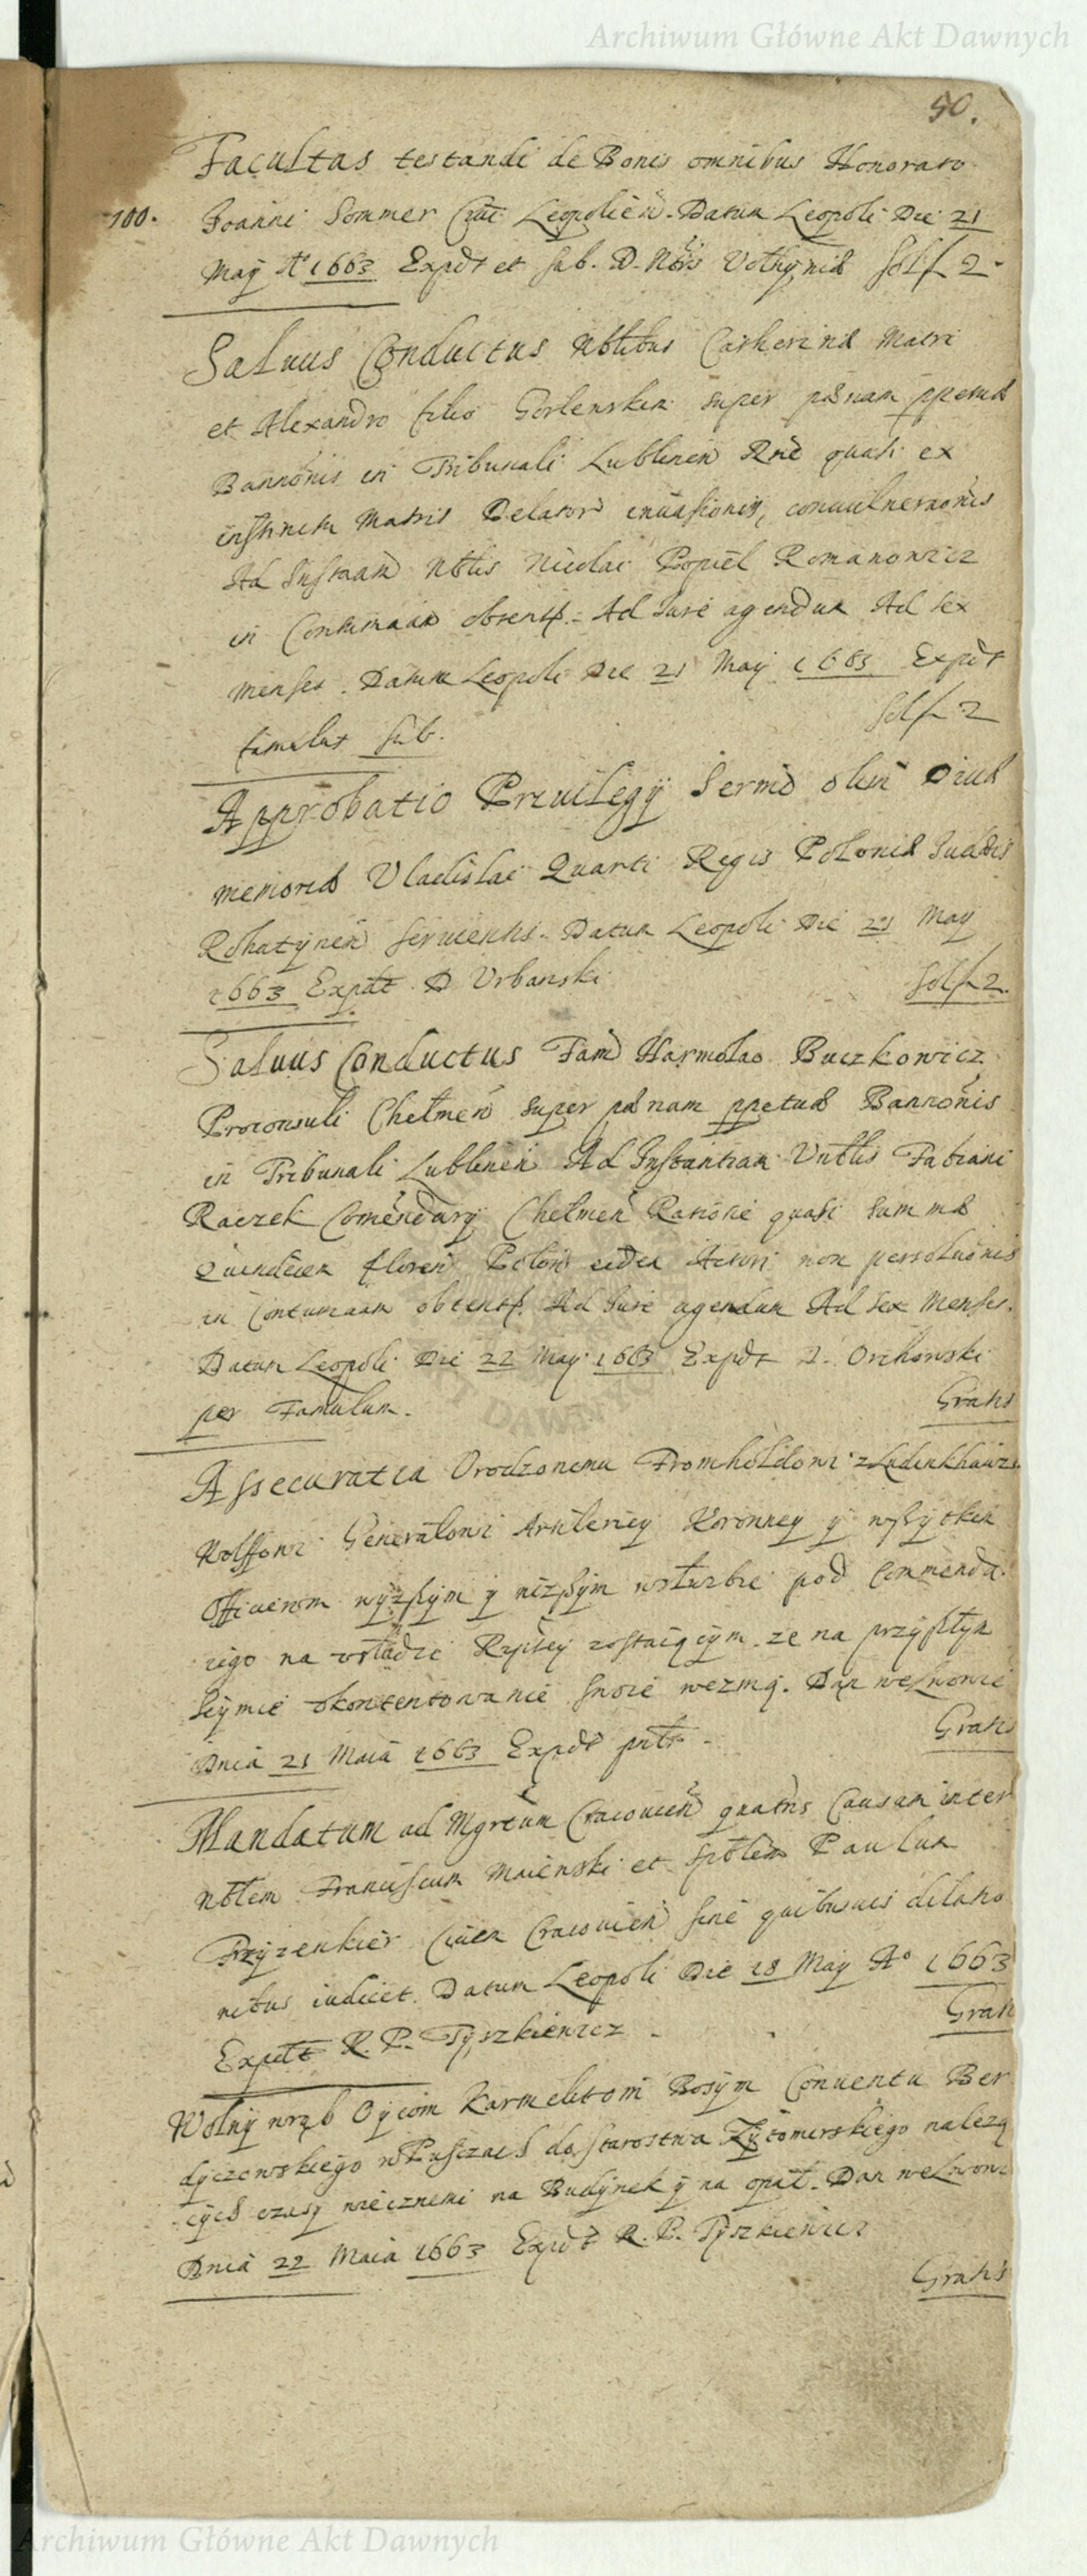 Archiwum Główne Akt Dawnych
50.
Facultas testandi de Bonis omnibus Honorato
100. Joanni Sommer Civi Leopolien. Datum Leopoli Die 21
May Ao 1663 Expdt et sub. D. Nris Vothynid Solf 2.
Salvus Conductus Nobilibus Catherinæ Matri
et Alexandro filio Gorlenskim super pænam ppetuæ
Bannonis in Tribunali Lublinen Rne quasi ex
instinctu Matris Delatore invasionis, convulneraonis
Ad Instaam Nblis Nicolai Popiel Romanowicz
in Contumaam obtent. Ad Jure agendum Ad sex
menses. Datum Leopoli Die 21 May 1663 Expdt
famulus sub. Solf 2
Approbatio Privilegÿ Sermi olim Divæ
memoriæ Vladislai Quarti Regis Poloniæ Judæis
Rohatÿnen servientis. Datum Leopoli Die 21 May
1663 Expdt. D Urbanski Solf 2.
Salvus Conductus Fam Harmolao Buczkowicz
Proconsuli Chelmen super pænam ppetuæ Bannonis
in Tribunali Lublinen Ad Instantiam Fabiani
Raczek Comendarÿ Chelmen Ratione quasi summæ
Quindecim floren Polon eidem Actori non persoluonis
in Contumaam obtent. Ad Jure agendum Ad sex Menses.
Datum Leopoli Die 22 May 1663 Expdt D. Orchowski
per Famulum. Gratis
Assecuratia Urodzonemu Fromholdowi z Ludinkhauzu
Wolffowi Generałowi Artileriey Koronney ÿ wszÿtkim
Officierom wÿższÿm ÿ niższÿm w służbie pod Commendą
iego na władze Rzpltey zostaiącÿm. ze na przÿszłÿm
Seÿmie ukontentowanie swoie wezmą. Dan we Lwowie
Dnia 21 Maia 1663 Expdt Gratis
Mandatum ad Mgrtum Cracovien quatns Causam inter
Nblem Franciscum Maienski et Sptlem Paulum
Przÿzenkier Civem Cracovien sine quibusvis dilatio
nibus iudicet. Datum Leopoli Die 18 May Ao 1663
Expdt R. P. Tÿszkiewicz. Gratis
Wolnÿ wrąb Oÿcom Karmelitom Bosÿm Conventu Ber
dÿczewskiego w Puszczach do Starostwa Żÿtomirskiego należą
cÿch czasÿ wiecznemi na Budÿnek ÿ na opał. Dan we Lwowie
Dnia 22 Maia 1663 Expdt R. P. Tÿszkiewicz
Gratis
Archiwum Główne Akt Dawnych